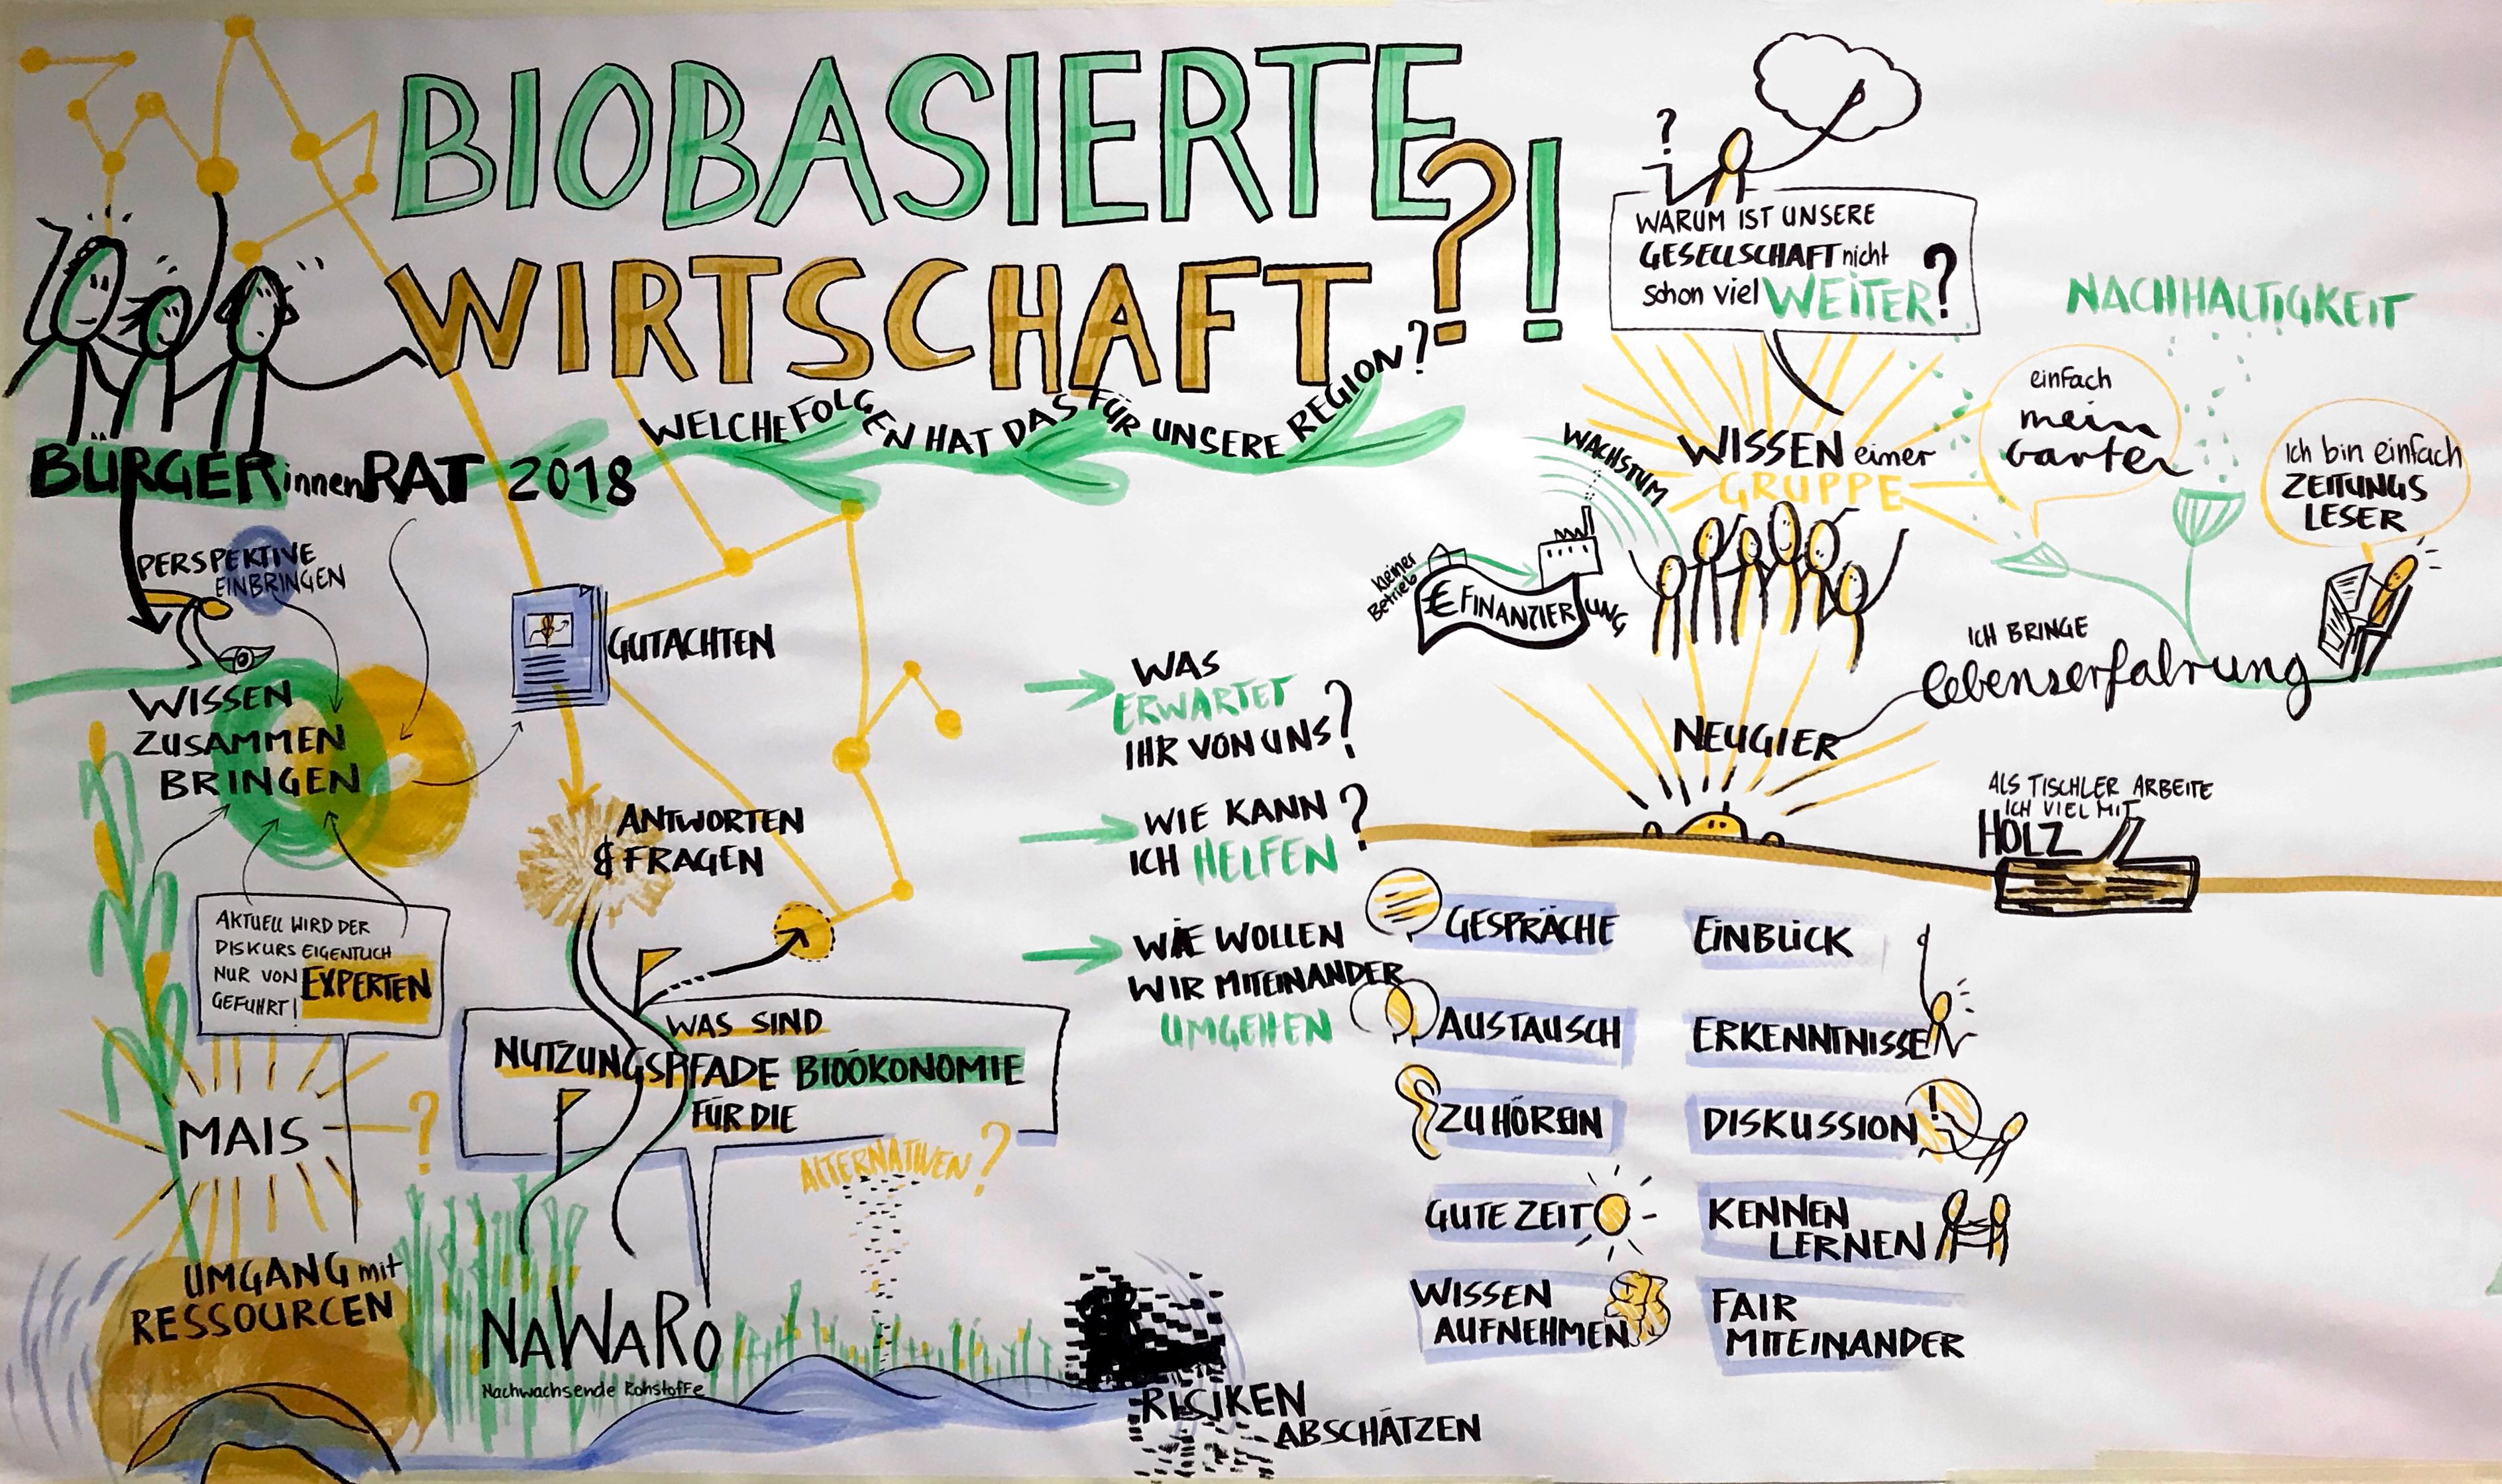 BIOBASIERTE
WIRTSCHAFT?!
WELCHE FOLGEN HAT DAS FÜR UNSERE REGION?
BÜRGERinnenRAT 2018
PERSPEKTIVE
EINBRINGEN
WISSEN
ZUSAMMEN
BRINGEN
AKTUELL WIRD DER
DISKURS EIGENTLICH
NUR VON EXPERTEN
GEFÜHRT!
MAIS
?
UMGANG mit
RESSOURCEN
GUTACHTEN
ANTWORTEN
& FRAGEN
WAS SIND
NUTZUNGSPFADE BIOÖKONOMIE
FÜR DIE
ALTERNATIVEN?
NAWARO
Nachwachsende Rohstoffe
RISIKEN
ABSCHÄTZEN
WAS
ERWARTET
IHR VON UNS?
WIE KANN
ICH HELFEN?
WIE WOLLEN
WIR MITEINANDER
UMGEHEN
?
WARUM IST UNSERE
GESELLSCHAFT nicht
schon viel WEITER?
WISSEN einer
GRUPPE
WACHSTUM
kleiner
Betrieb
€ FINANZIERUNG
NACHHALTIGKEIT
einfach
mein
Garten
Ich bin einfach
ZEITUNGS
LESER
ICH BRINGE
lebenserfahrung
NEUGIER
ALS TISCHLER ARBEITE
ICH VIEL MIT
HOLZ
GESPRÄCHE
AUSTAUSCH
ZUHÖREN
GUTE ZEIT
WISSEN
AUFNEHMEN
EINBLICK
ERKENNTNISSE
DISKUSSION !
KENNEN
LERNEN
FAIR
MITEINANDER